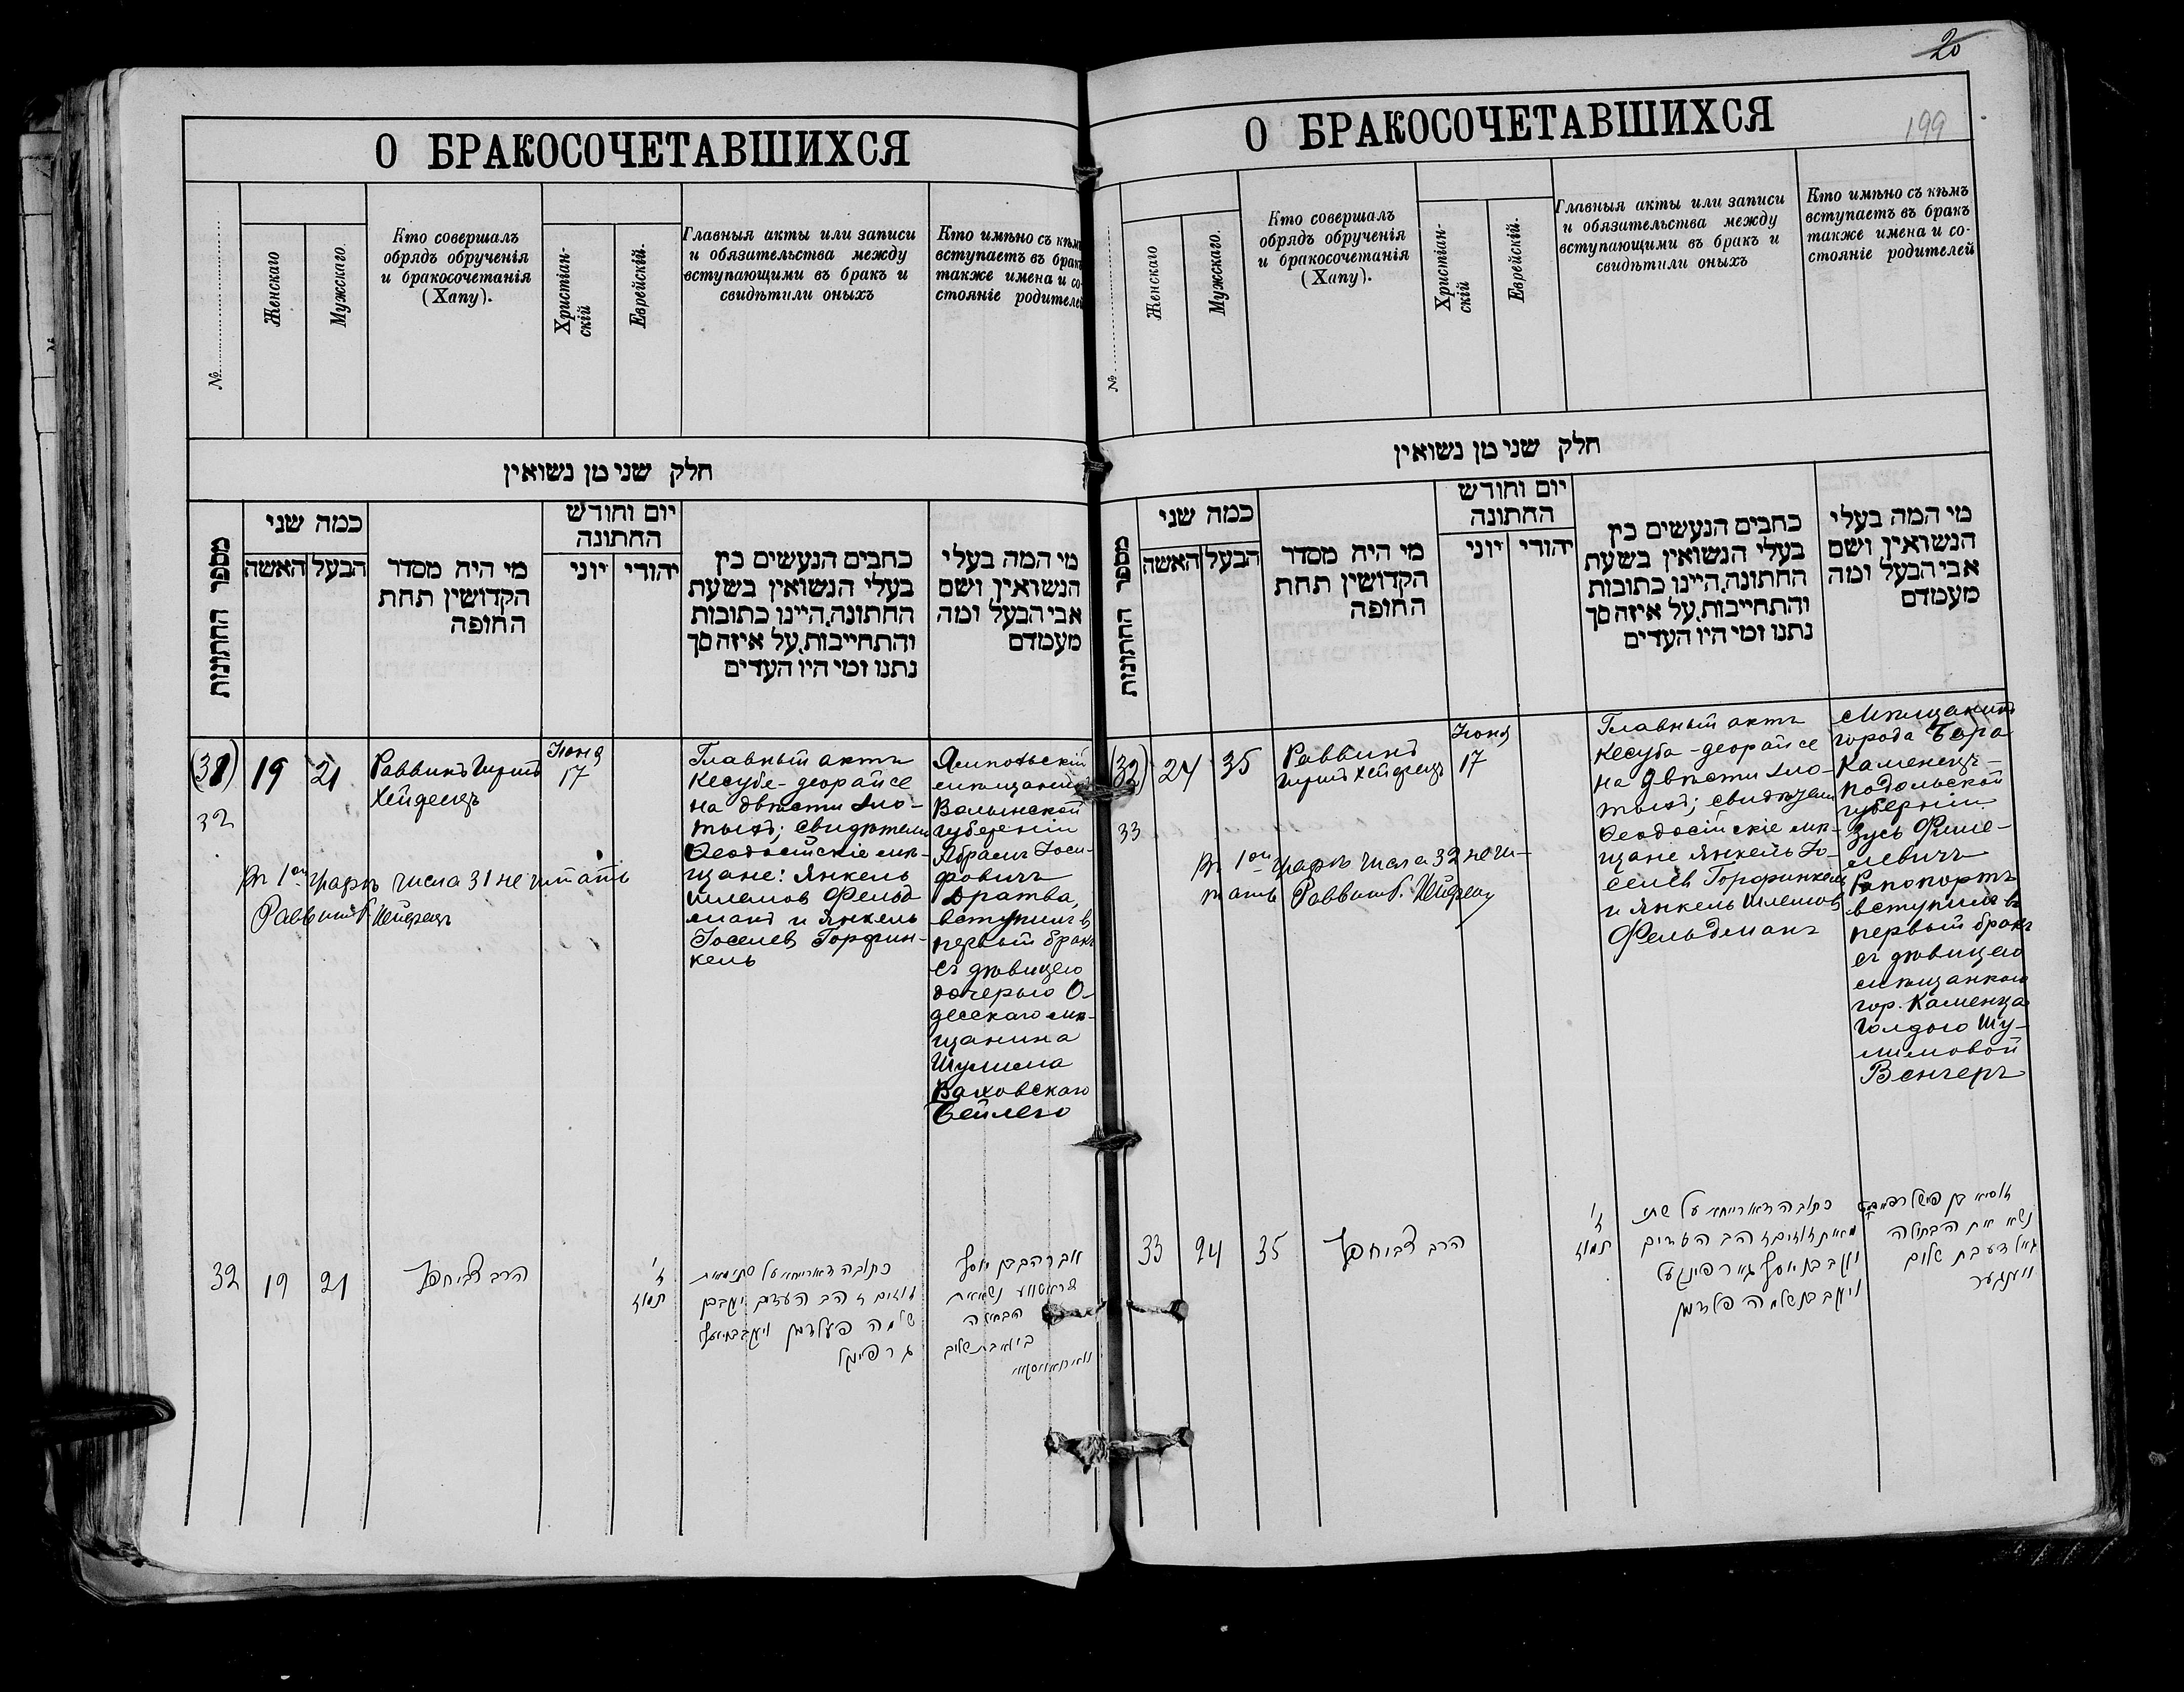 О БРАКОСОЧЕТАВШИХСЯ
№
Женскаго
Мужскаго
Кто совершалъ
обрядъ обрученія
и бракосочетанія
(Хапу).
Христіан-
скій
Еврейскій.
Главныя акты или записи
и обязательства между
вступающими въ бракъ и
свидѣтили оныхъ
Кто имѣно съ кѣмъ
вступаетъ въ бракъ
также имена и со-
стояніе родителей
חלק שני מן נשואין
מספר החתונות
כמה שני
האשה
הבעל
מי היה מסדר
הקדושין תחת
החופה
יום וחודש
החתונה
יוני
יהודי
כתבים הנעשים בין
בעלי הנשואין בשעת
החתונה, היינו כתובות
והתחייבות, על איזה סך
נתנו ומי היו העדים
מי המה בעלי
הנשואין ושם
אבי הבעל ומה
מעמדם
(31)
32
19
21
Раввинъ Гиршъ
Хейфецъ
Іюня
17
Главный актъ
Кесубе-деорайсе
на двѣсти зло-
тыхъ; свидѣтели
Ѳеодосійскіе мѣ-
щане: Янкель
Шлемовъ Фельд
манъ и Янкель
Іоселевъ Горфин-
кель
Ямпольскій
мѣщанинъ
Волынской
губерніи
Абрамъ Іоси-
фовичъ
Дратва,
вступилъ въ
первый бракъ
съ дѣвицею
дочерью О-
десскаго мѣ-
щанина
Шулима
Ваховскаго
Бейлею
Въ 1ой графѣ числа 31 не читать
Раввинъ Г. Хейфецъ
32
19
21
הרב
ז'
תמוז
כתובה דאורייתא על שתי מאות
זוזים זהב העדים יעקב בן
שלמה פעלדמן ויעקב בן יוסף
גרפינקל
אברהם בן יוסף
דראטווע נשא את
הבתולה
ביילא בת שלום
20
199
О БРАКОСОЧЕТАВШИХСЯ
№
Женскаго
Мужскаго.
Кто совершалъ
обрядъ обрученія
и бракосочетанія
(Хапу).
Христіан-
скій
Еврейскій.
Главныя акты или записи
и обязательства между
вступающими въ бракъ и
свидѣтили оныхъ
Кто имѣно съ кѣмъ
вступаетъ въ бракъ
также имена и со-
стояніе родителей
חלק שני מן נשואין
מספר החתונות
כמה שני
האשה
הבעל
מי היה מסדר
הקדושין תחת
החופה
יום וחודש
החתונה
יוני
יהודי
כתבים הנעשים בין
בעלי הנשואין בשעת
החתונה, היינו כתובות
והתחייבות, על איזה סך
נתנו ומי היו העדים
מי המה בעלי
הנשואין ושם
אבי הבעל ומה
מעמדם
(32)
33
24
35
Раввинъ
Гиршъ Хейфецъ
Іюня
17
Главный актъ
Кесуба-деорайсе
на двѣсти зло-
тыхъ; свидѣтели
Ѳеодосійскіе мѣ-
щане Янкель Іо-
селев Горфинкель
и Янкель Шлемовъ
Фельдманъ
Мѣщанинъ
города Бара
Каменецъ-
Подольской
губерніи
Зусь Фише-
левичъ
Рапопортъ
вступилъ въ
первый бракъ
съ дѣвицею
мѣщанкою
гор. Каменца
Голдою Шу-
лимовой
Венгеръ
Въ 1ой графѣ числа 32 не чи-
тать Раввинъ Г. Хейфецъ
33
24
35
הרב
ז'
תמוז
כתובה דאורייתא על שתי
מאות זוזים זהב העדים
יעקב בן יוסף גארפינקעל
ויעקב בן שלמה פלדמן
זוסיא בן פישל
נשא את הבתולה
גאלדע בת שלום
ווענגער